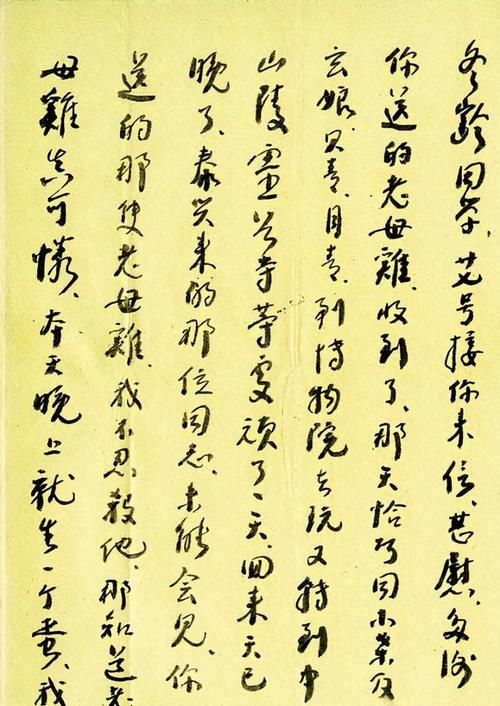 冬龄同学、号接你来信、甚慰、多谢
你送的老母雞、收到了、那天恰巧同及
到博物院去玩又到中
山陵靈谷寺等處頑了一天、回来天已
晚了、泰兴来的那位同志、未能会见、你
送的那隻老母雞、我不忍殺他、那知道老
母雞真可憐、本天晚上就生一个蛋、我